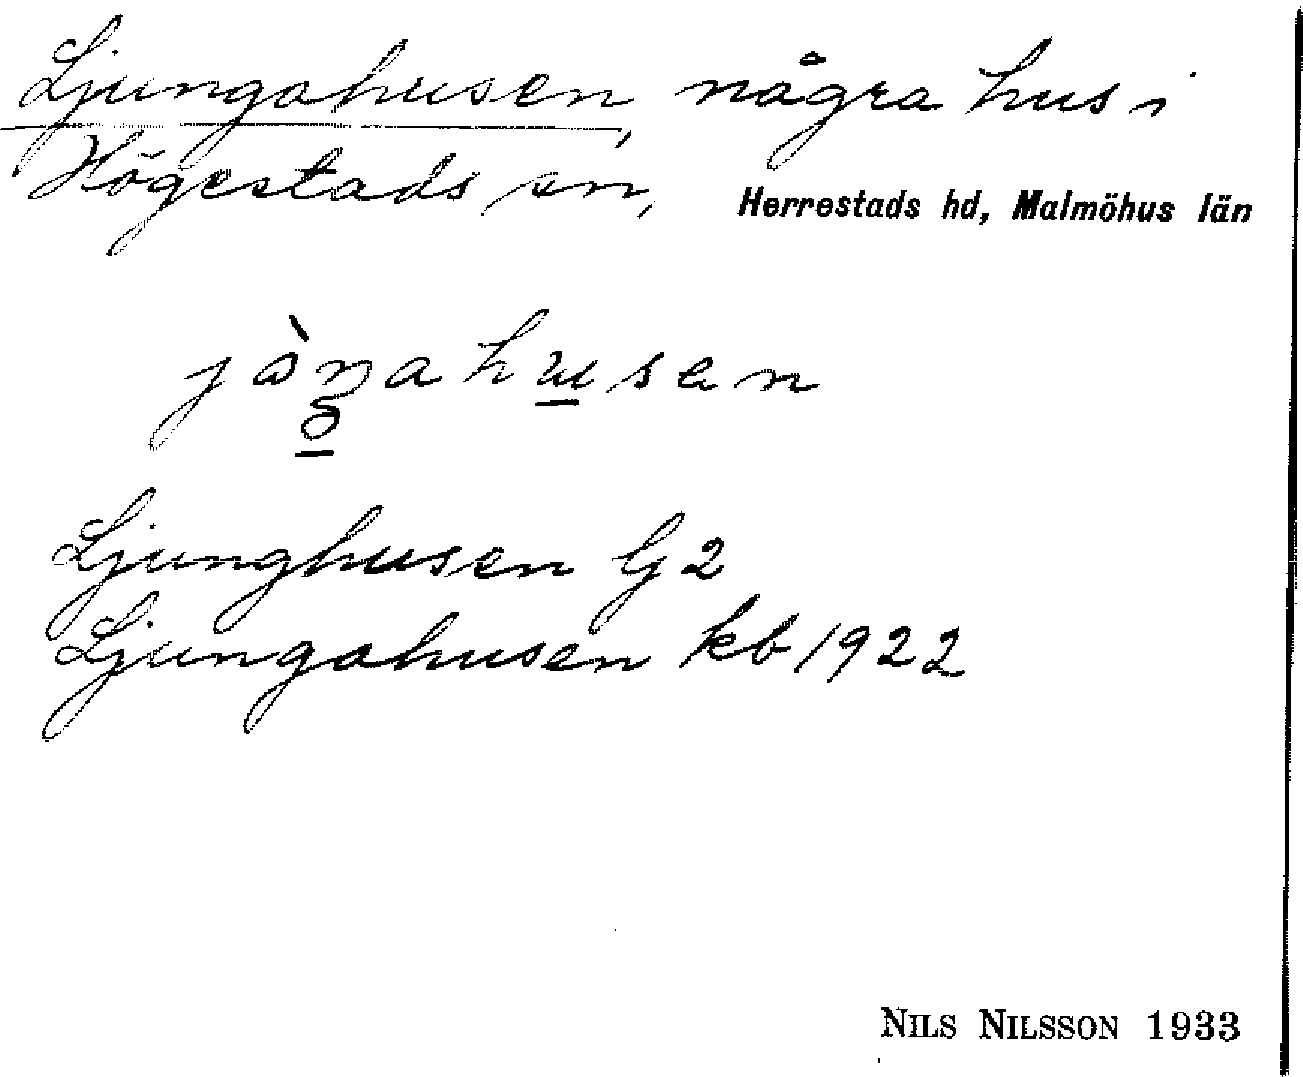 Ljungahusen, några hus i
Högestads sn, Herrestads hd, Malmöhus län
Ljunghusen G2
Ljungahusen kb 1922
NILS NILSSON 1933